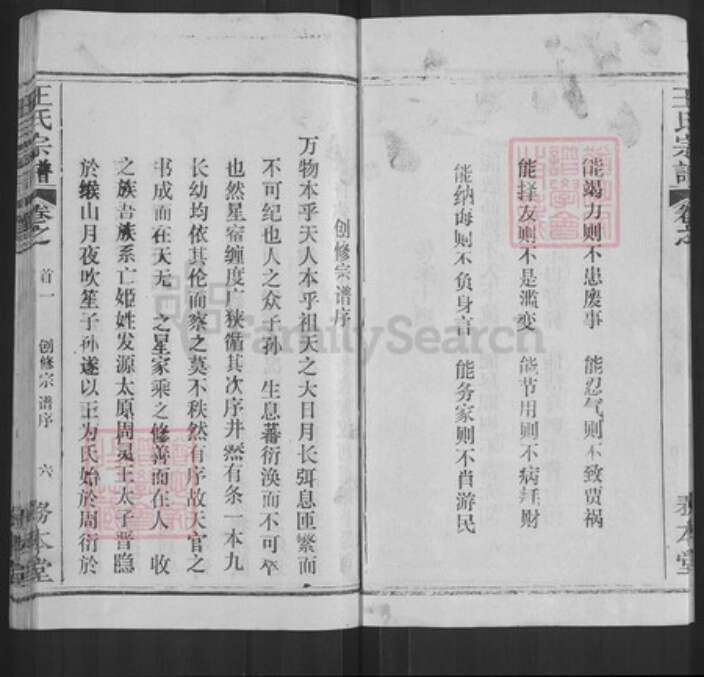 王氏宗谱
卷之
能竭力则不患废事 能忍气则不致贾祸
能择友则不是滥变 能节用则不病耗财
能纳诲则不负身言 能务家则不肖游民
务本堂
创修宗谱序
万物本乎天人本乎祖天之大日月长弭息匪繁而
不可纪也人之众子孙 生息蕃衍涣而不可卒
也然星宿缠度广狭循其次序井然有条一本九
长幼均依其伦而察之莫不秩然有序故天官之
书成而在天无 之星家乘之修善而在人 收
之族吾族系亡姬姓发源太原周灵王太子晋隐
於缑山月夜吹笙子孙遂以王为氏始於周衍於
王氏宗谱
卷之
首一
创修宗谱序
六
务本堂
FamilySearch